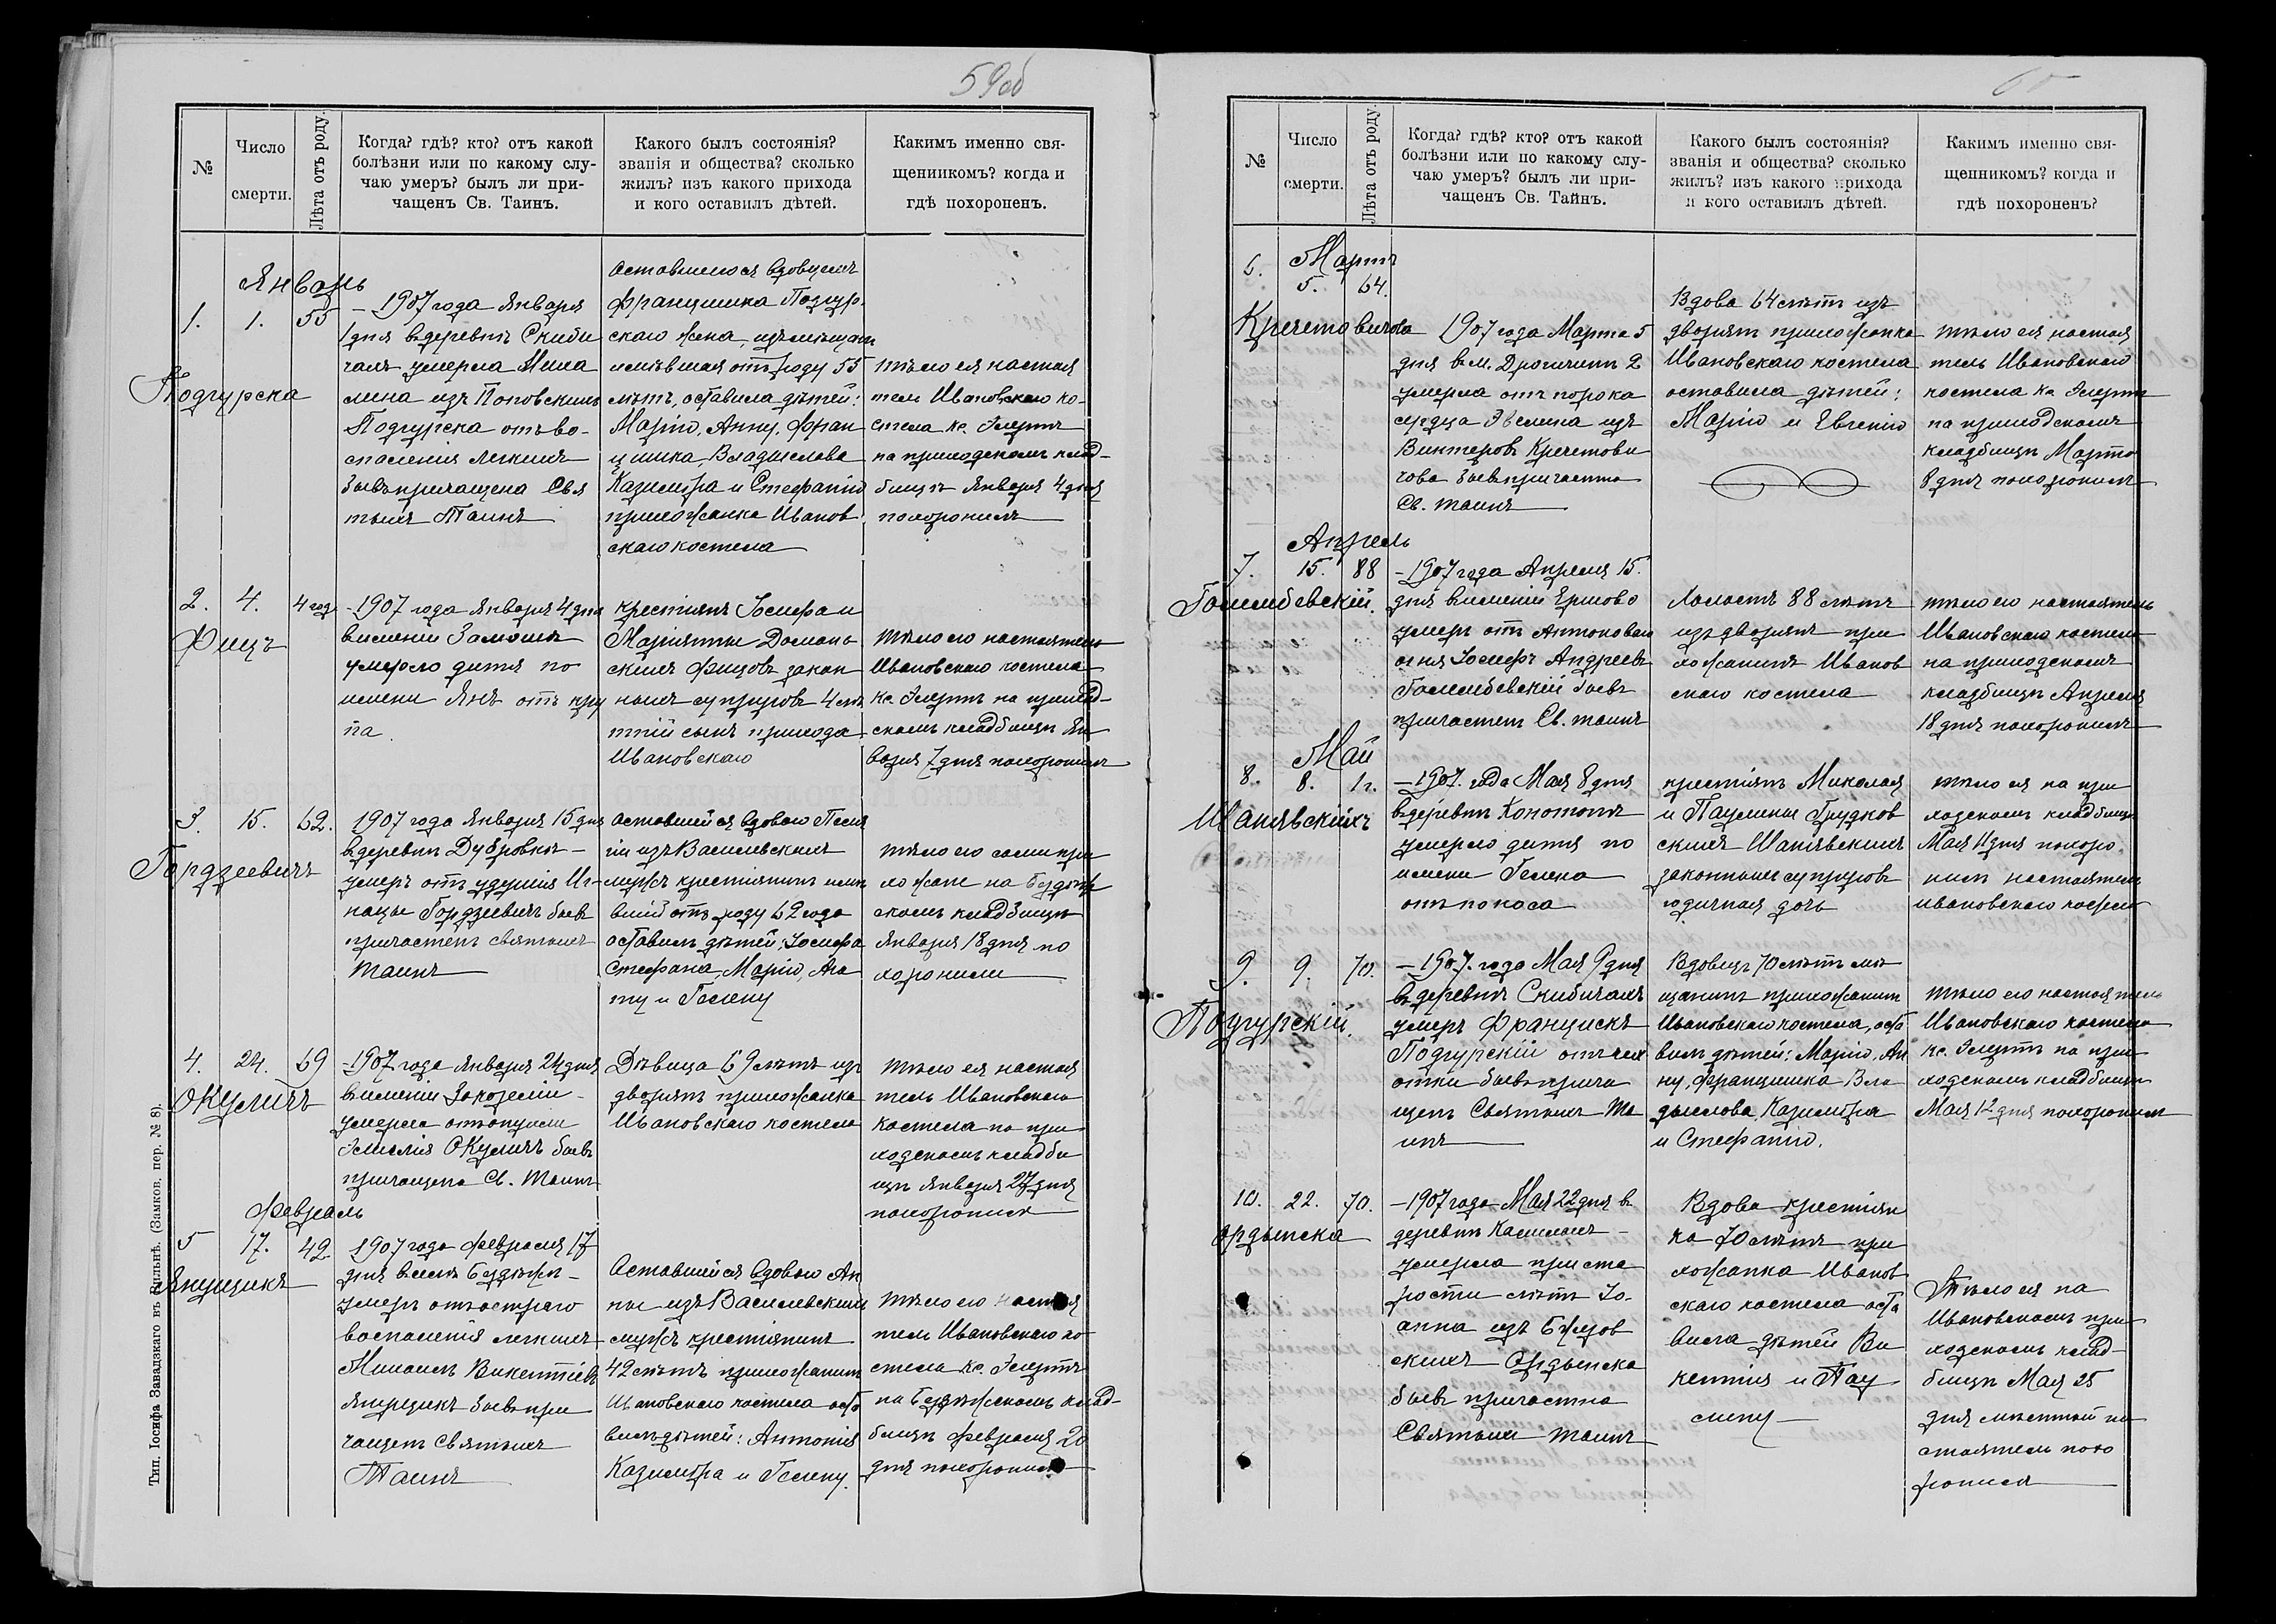 59об
№
Число
смерти.
Лѣта отъ роду.
Когда? гдѣ? кто? отъ какой
болѣзни или по какому слу-
чаю умеръ? былъ ли при-
чащенъ Св. Таинъ.
Какого былъ состоянія?
званія и общества? сколько
жилъ? изъ какого прихода
и кого оставилъ дѣтей.
Какимъ именно свя-
щенникомъ? когда и
гдѣ похороненъ.
Январь
1.
1.
55
Подгурска
– 1907 года Января
1 дня в деревнѣ Скиби
чахъ умерла Миха
лина изъ Поповскихъ
Подгурска отъ во-
спаленія легкихъ
бывъ причащена Свя
тыхъ Таинъ
Оставшегося вдовцемъ
Францишка Подгур.
скаго жена, изъ мѣщанъ
имѣвшая отъ роду 55
лѣтъ, оставила дѣтей:
Марію, Анну, Фран
цишка, Владыслава
Казимира и Стефанію
прихожанка Иванов
скаго костела
тѣло ея настоя
тель Ивановскаго ко-
стела кс.
на приходскомъ клад-
бищѣ Января 4 дня
похоронилъ
2.
4.
4 год
Фицъ
– 1907 года Января 4 дня
в имѣніи Замошьѣ
умерло дитя по
имени Янъ отъ кру
па.
крестіянъ Іосифа и
Маріянны Домань
скихъ Фицовъ закон
ныхъ супруговъ 4 лѣ
тній сынъ прихода
Ивановскаго
тѣло его настоятель
Ивановскаго костела
кс. на приход-
скомъ кладбищѣ Ян
варя 7 дня похоронилъ
3.
15.
62.
Гордзеевичъ
1907 года Января 15 дня
в деревнѣ Дубровкѣ –
умеръ отъ удушія Иг-
нацы Гордзеевичъ бывъ
причастенъ святыхъ
Таинъ
оставшейся вдовою Пела
гіи изъ Василевскихъ
мужъ крестіянинъ имѣ
вшій отъ роду 62 года
оставилъ дѣтей: Іосифа
Стефана, Марію, Ага
ту и Гелену
тѣло его сами при
хожане на Бездѣж
скомъ кладбищѣ
Января 18 дня по
хоронили
4.
24.
69
Окуличъ
– 1907 года Января 24 дня
в имѣніи Закозели –
умерла отъ опухоли
Эмилія Окуличъ бывъ
причащена Св. Таинъ
Дѣвица 69 лѣтъ изъ
дворянъ прихожанка
Ивановскаго костела
тѣло ея настоя
тель Ивановскаго
костела на при
ходскомъ кладби
щѣ Января 27 дня
похоронилъ
Февраль
5
17.
42
Янущикъ
1907 года Февраля 17
дня в Бездѣжѣ –
умеръ отъ остраго
воспаленія легкихъ
Михаилъ Викентіевъ
Янущикъ бывъ при
чащенъ Святыхъ
Таинъ
Оставшейся вдовою Ан
ны изъ Василевскихъ
мужъ крестіянинъ
42 лѣтъ прихожанинъ
Ивановскаго костела оста
вилъ дѣтей: Антонія
Казимира и Гелену.
тѣло его настоя
тель Ивановскаго ко
стела кс.
на Бездѣжскомъ клад-
бищѣ Февраля 20
дня похоронилъ
Тип. Іосифа Завадзкаго въ Вильнѣ. (Замков. пер. № 8).
60
№
Число
смерти.
Лѣта отъ роду.
Когда? гдѣ? кто? отъ какой
болѣзни или по какому слу-
чаю умеръ? былъ ли при-
чащенъ Св. Тайнъ.
Какого былъ состоянія?
званія и общества? сколько
жилъ? изъ какого прихода
и кого оставилъ дѣтей.
Какимъ именно свя-
щенникомъ? когда и
гдѣ похороненъ?
Мартъ
6.
5.
64.
Кречетовичова
1907 года Марта 5
дня в м. Дрогичинѣ
умерла отъ порока
сердца Эвелина изъ
Винтеровъ Кречетови
чова бывъ причастна
Св. таинъ
Вдова 64 лѣтъ изъ
дворянъ прихожанка
Ивановскаго костела
оставила дѣтей:
Марію и Евгенію
тѣло ея настоя
тель Ивановскаго
костела кс.
на приходскомъ
кладбищѣ Марта
8 дня похоронилъ
Апрель
7.
15.
88
Голембевскій.
– 1907 года Апреля 15.
дня в имѣніи Ершово
умеръ отъ Антоноваго
огня Іосифъ Андреевъ
Голембевскій бывъ
причастенъ Св. таинъ
Холостъ 88 лѣтъ
изъ дворянъ при
хожанинъ Иванов
скаго костела
тѣло его настоятель
Ивановскаго костела
на приходскомъ
кладбищѣ Апреля
18 дня похоронилъ
Май
8.
8.
1 г.
Шанявскихъ
– 1907. года Мая 8 дня
в деревнѣ Конотопѣ
умерло дитя по
имени Гелена
отъ поноса
крестіянъ Миколая
и Паулины Грудков
скихъ Шанявскихъ
законныхъ супруговъ
годичная дочь
тѣло ея на при
ходскомъ кладбищѣ
Мая 11 дня похоро
нилъ настоятель
ивановскаго костела
9.
9.
70.
Подгурскій.
– 1907. года Мая 9 дня
в деревнѣ Скибичахъ
умеръ Францискъ
Подгурскій отъ чах
отки бывъ прича
щенъ Святыхъ Та
инъ
Вдовецъ 70 лѣтъ мѣ
щанинъ прихожанинъ
Ивановскаго костела, оста
вилъ дѣтей: Марію, Ан
ну, Францишка Вла
дыслава, Казимира
и Стефанію.
тѣло его настоятель
Ивановскаго костела
кс. на при
ходскомъ кладбищѣ
Мая 12 дня похоронилъ
10.
22.
70.
Ордынска
– 1907 года Мая 22 дня в
деревнѣ –
умерла при ста
рости лѣтъ Іо-
анна изъ Бжезов
скихъ Ордынска
бывъ причастна
Святыхъ таинъ
Вдова крестіян
ка 70 лѣтъ при
хожанка Иванов
скаго костела оста
вила дѣтей Ви
кентія и Пау
лину –
Тѣло ея на
Ивановскомъ при
ходскомъ клад-
бищѣ Мая 25
дня мѣстный на
стоятель похо
ронилъ